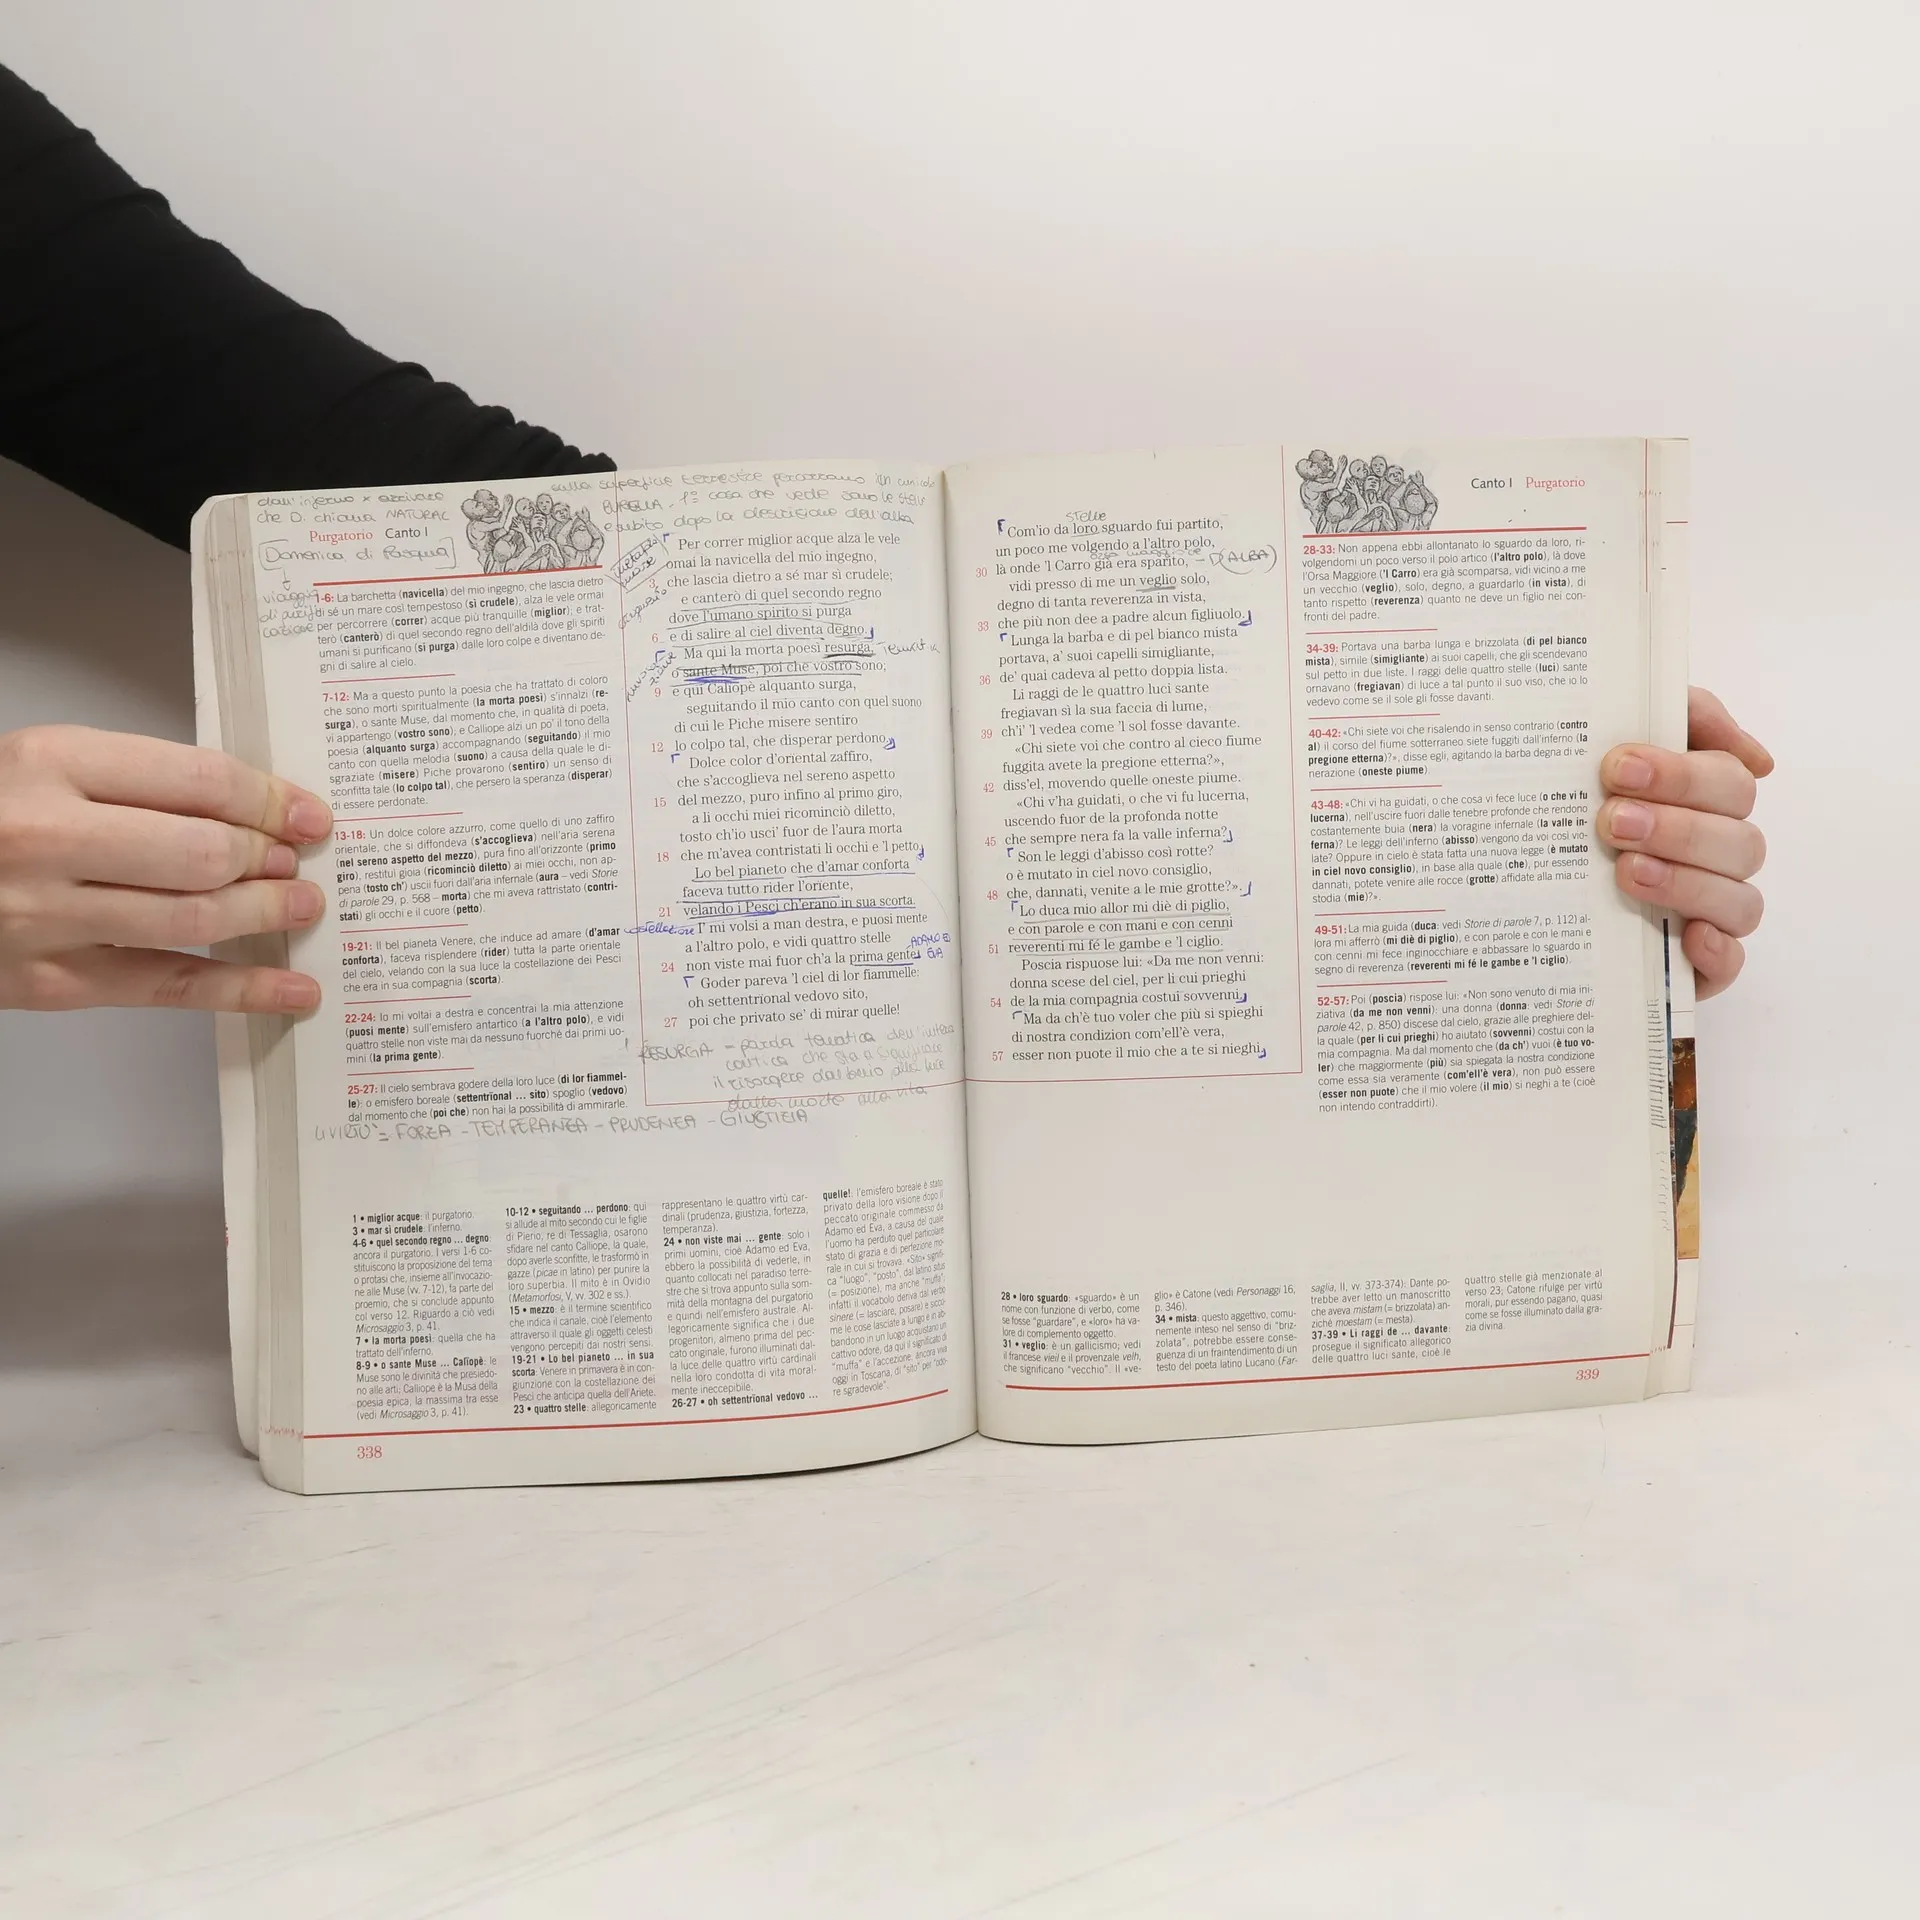 dall'inferno x arrivare
che D. chiama NATURAL
Purgatorio Canto I
Domenica di Pasqua
sulla superficie terrestre percorrono un
BURELLA - 1ª cosa che vede sono le stelle
e subito dopo la descrizione dell'alba
1-6: La barchetta (navicella) del mio ingegno, che lascia dietro
di sé un mare così tempestoso (sì crudele), alza le vele ormai
per percorrere (correr) acque più tranquille (miglior); e trat-
terò (canterò) di quel secondo regno dell'aldilà dove gli spiriti
umani si purificano (si purga) dalle loro colpe e diventano de-
gni di salire al cielo.
7-12: Ma a questo punto la poesia che ha trattato di coloro
che sono morti spiritualmente (la morta poesì) s'innalzi (re-
surga), o sante Muse, dal momento che, in qualità di poeta,
vi appartengo (vostro sono), e Calliope alzi un po' il tono della
poesia (alquanto surga) accompagnando (seguitando) il mio
canto con quella melodia (suono) a causa della quale le di-
sgraziate (misere) Piche provarono (sentiro) un senso di
sconfitta tale (lo colpo tal), che persero la speranza (disperar)
di essere perdonate.
13-18: Un dolce colore azzurro, come quello di uno zaffiro
orientale, che si diffondeva (s'accoglieva) nell'aria serena
(nel sereno aspetto del mezzo), pura fino all'orizzonte (primo
giro), restituì gioia (ricominciò diletto) ai miei occhi, non ap-
pena (tosto ch') uscii fuori dall'aria infernale (aura – vedi Storie
di parole 29, p. 568 – morta) che mi aveva rattristato (contri-
stati) gli occhi e il cuore (petto).
19-21: Il bel pianeta Venere, che induce ad amare (d'amar
conforta), faceva risplendere (rider) tutta la parte orientale
del cielo, velando con la sua luce la costellazione dei Pesci
che era in sua compagnia (scorta).
22-24: Io mi voltai a destra e concentrai la mia attenzione
(puosi mente) sull'emisfero antartico (a l'altro polo), e vidi
quattro stelle non viste mai da nessuno fuorché dai primi uo-
mini (la prima gente).
25-27: Il cielo sembrava godere della loro luce (di lor fiammel-
le): o emisfero boreale (settentrïonal ... sito) spoglio (vedovo)
dal momento che (poi che) non hai la possibilità di ammirarle.
Per correr miglior acque alza le vele
omai la navicella del mio ingegno,
3 che lascia dietro a sé mar sì crudele;
e canterò di quel secondo regno
dove l'umano spirito si purga
6 e di salire al ciel diventa degno.
Ma qui la morta poesì resurga,
o sante Muse, poi che vostro sono;
9 e qui Calïopè alquanto surga,
seguitando il mio canto con quel suono
di cui le Piche misere sentiro
12 lo colpo tal, che disperar perdono.
Dolce color d'orïental zaffiro,
che s'accoglieva nel sereno aspetto
15 del mezzo, puro infino al primo giro,
a li occhi miei ricominciò diletto,
tosto ch'io usci' fuor de l'aura morta
18 che m'avea contristati li occhi e 'l petto.
Lo bel pianeto che d'amar conforta
faceva tutto rider l'orïente,
21 velando i Pesci ch'erano in sua scorta.
costellazione
I' mi volsi a man destra, e puosi mente
a l'altro polo, e vidi quattro stelle
ADAMO E
24 non viste mai fuor ch'a la prima gente.
EVA
Goder pareva 'l ciel di lor fiammelle:
oh settentrïonal vedovo sito,
27 poi che privato se' di mirar quelle!
RESURGA - parola tematica dell'intera
cantica che sta a significare
il risorgere dal buio alla luce
dalla morte alla vita
4 VIRTÙ = FORZA - TEMPERANZA - PRUDENZA - GIUSTIZIA
1 • miglior acque: il purgatorio.
3 • mar sì crudele: l'inferno.
4-6 • quel secondo regno ... degno:
ancora il purgatorio. I versi 1-6 co-
stituiscono la proposizione del tema
o protasi che, insieme all'invocazio-
ne alle Muse (vv. 7-12), fa parte del
proemio, che si conclude appunto
col verso 12. Riguardo a ciò vedi
Microsaggio 3, p. 41.
7 • la morta poesì: quella che ha
trattato dell'inferno.
8-9 • o sante Muse ... Calïopè: le
Muse sono le divinità che presiedo-
no alle arti; Calliope è la Musa della
poesia epica, la massima tra esse
(vedi Microsaggio 3, p. 41).
10-12 • seguitando ... perdono: qui
si allude al mito secondo cui le figlie
di Pierio, re di Tessaglia, osarono
sfidare nel canto Calliope, la quale,
dopo averle sconfitte, le trasformò in
gazze (picae in latino) per punire la
loro superbia. Il mito è in Ovidio
(Metamorfosi, V, vv. 302 e ss.)
15 • mezzo: è il termine scientifico
che indica il canale, cioè l'elemento
attraverso il quale gli oggetti celesti
vengono percepiti dai nostri sensi.
19-21 • Lo bel pianeto ... in sua
scorta: Venere in primavera è in con-
giunzione con la costellazione dei
Pesci che anticipa quella dell'Ariete.
23 • quattro stelle: allegoricamente
rappresentano le quattro virtù car-
dinali (prudenza, giustizia, fortezza,
temperanza).
24 • non viste mai ... gente: solo i
primi uomini, cioè Adamo ed Eva,
ebbero la possibilità di vederle, in
quanto collocati nel paradiso terre-
stre che si trova appunto sulla som-
mità della montagna del purgatorio
e quindi nell'emisfero australe. Al-
legoricamente significa che i due
progenitori, almeno prima del pec-
cato originale, furono illuminati dal-
la luce delle quattro virtù cardinali
nella loro condotta di vita moral-
mente ineccepibile.
26-27 • oh settentrïonal vedovo ...
quelle!: l'emisfero boreale è stato
privato della loro visione dopo il
peccato originale commesso da
Adamo ed Eva, a causa del quale
l'uomo ha perduto quel particolare
stato di grazia e di perfezione mo-
rale in cui si trovava. «Sito» signifi-
ca "luogo", "posto", dal latino situs
(= posizione), ma anche "muffa";
infatti il vocabolo deriva dal verbo
sinere (= lasciare, posare) e sicco-
me le cose lasciate a lungo e in ab-
bandono in un luogo acquistano un
cattivo odore, da qui il significato di
"muffa" e l'accezione, ancora viva
oggi in Toscana, di "sito" per "odo-
re sgradevole".
338
Canto I Purgatorio
stelle
Com'io da loro sguardo fui partito,
un poco me volgendo a l'altro polo,
orsa maggiore
30 là onde 'l Carro già era sparito, – (ALBA)
vidi presso di me un veglio solo,
degno di tanta reverenza in vista,
33 che più non dee a padre alcun figliuolo.
Lunga la barba e di pel bianco mista
portava, a' suoi capelli simigliante,
36 de' quai cadeva al petto doppia lista.
Li raggi de le quattro luci sante
fregiavan sì la sua faccia di lume,
39 ch'i' 'l vedea come 'l sol fosse davante.
«Chi siete voi che contro al cieco fiume
fuggita avete la pregione etterna?»,
42 diss'el, movendo quelle oneste piume.
«Chi v'ha guidati, o che vi fu lucerna,
uscendo fuor de la profonda notte
45 che sempre nera fa la valle inferna?
Son le leggi d'abisso così rotte?
o è mutato in ciel novo consiglio,
48 che, dannati, venite a le mie grotte?».
Lo duca mio allor mi diè di piglio,
e con parole e con mani e con cenni
51 reverenti mi fé le gambe e 'l ciglio.
Poscia rispuose lui: «Da me non venni:
donna scese del ciel, per li cui prieghi
54 de la mia compagnia costui sovvenni.
Ma da ch'è tuo voler che più si spieghi
di nostra condizion com'ell'è vera,
57 esser non puote il mio che a te si nieghi.
28-33: Non appena ebbi allontanato lo sguardo da loro, ri-
volgendomi un poco verso il polo artico (l'altro polo), là dove
l'Orsa Maggiore ('l Carro) era già scomparsa, vidi vicino a me
un vecchio (veglio), solo, degno, a guardarlo (in vista), di
tanto rispetto (reverenza) quanto ne deve un figlio nei con-
fronti del padre.
34-39: Portava una barba lunga e brizzolata (di pel bianco
mista), simile (simigliante) ai suoi capelli, che gli scendevano
sul petto in due liste. I raggi delle quattro stelle (luci) sante
ornavano (fregiavan) di luce a tal punto il suo viso, che io lo
vedevo come se il sole gli fosse davanti.
40-42: «Chi siete voi che risalendo in senso contrario (contro
al) il corso del fiume sotterraneo siete fuggiti dall'inferno (la
pregione etterna)?», disse egli, agitando la barba degna di ve-
nerazione (oneste piume).
43-48: «Chi vi ha guidati, o che cosa vi fece luce (o che vi fu
lucerna), nell'uscire fuori dalle tenebre profonde che rendono
costantemente buia (nera) la voragine infernale (la valle in-
ferna)? Le leggi dell'inferno (abisso) vengono da voi così vio-
late? Oppure in cielo è stata fatta una nuova legge (è mutato
in ciel novo consiglio), in base alla quale (che), pur essendo
dannati, potete venire alle rocce (grotte) affidate alla mia cu-
stodia (mie)?».
49-51: La mia guida (duca: vedi Storie di parole 7, p. 112) al-
lora mi afferrò (mi diè di piglio), e con parole e con le mani e
con cenni mi fece inginocchiare e abbassare lo sguardo in
segno di reverenza (reverenti mi fé le gambe e 'l ciglio).
52-57: Poi (poscia) rispose lui: «Non sono venuto di mia ini-
ziativa (da me non venni): una donna (donna: vedi Storie di
parole 42, p. 850) discese dal cielo, grazie alle preghiere del-
la quale (per li cui prieghi) ho aiutato (sovvenni) costui con la
mia compagnia. Ma dal momento che (da ch') vuoi (è tuo vo-
ler) che maggiormente (più) sia spiegata la nostra condizione
come essa sia veramente (com'ell'è vera), non può essere
(esser non puote) che il mio volere (il mio) si neghi a te (cioè
non intendo contraddirti).
28 • loro sguardo: «sguardo» è un
nome con funzione di verbo, come
se fosse "guardare", e «loro» ha va-
lore di complemento oggetto.
31 • veglio: è un gallicismo; vedi
il francese vieil e il provenzale velh,
che significano "vecchio". Il «ve-
glio» è Catone (vedi Personaggi 16,
p. 346).
34 • mista: questo aggettivo, comu-
nemente inteso nel senso di "briz-
zolata", potrebbe essere conse-
guenza di un fraintendimento di un
testo del poeta latino Lucano (Far-
saglia, II, vv. 373-374): Dante po-
trebbe aver letto un manoscritto
che aveva mistam (= brizzolata) an-
ziché moestam (= mesta).
37-39 • Li raggi de ... davante:
prosegue il significato allegorico
delle quattro luci sante, cioè le
quattro stelle già menzionate al
verso 23; Catone rifulge per virtù
morali, pur essendo pagano, quasi
come se fosse illuminato dalla gra-
zia divina.
339